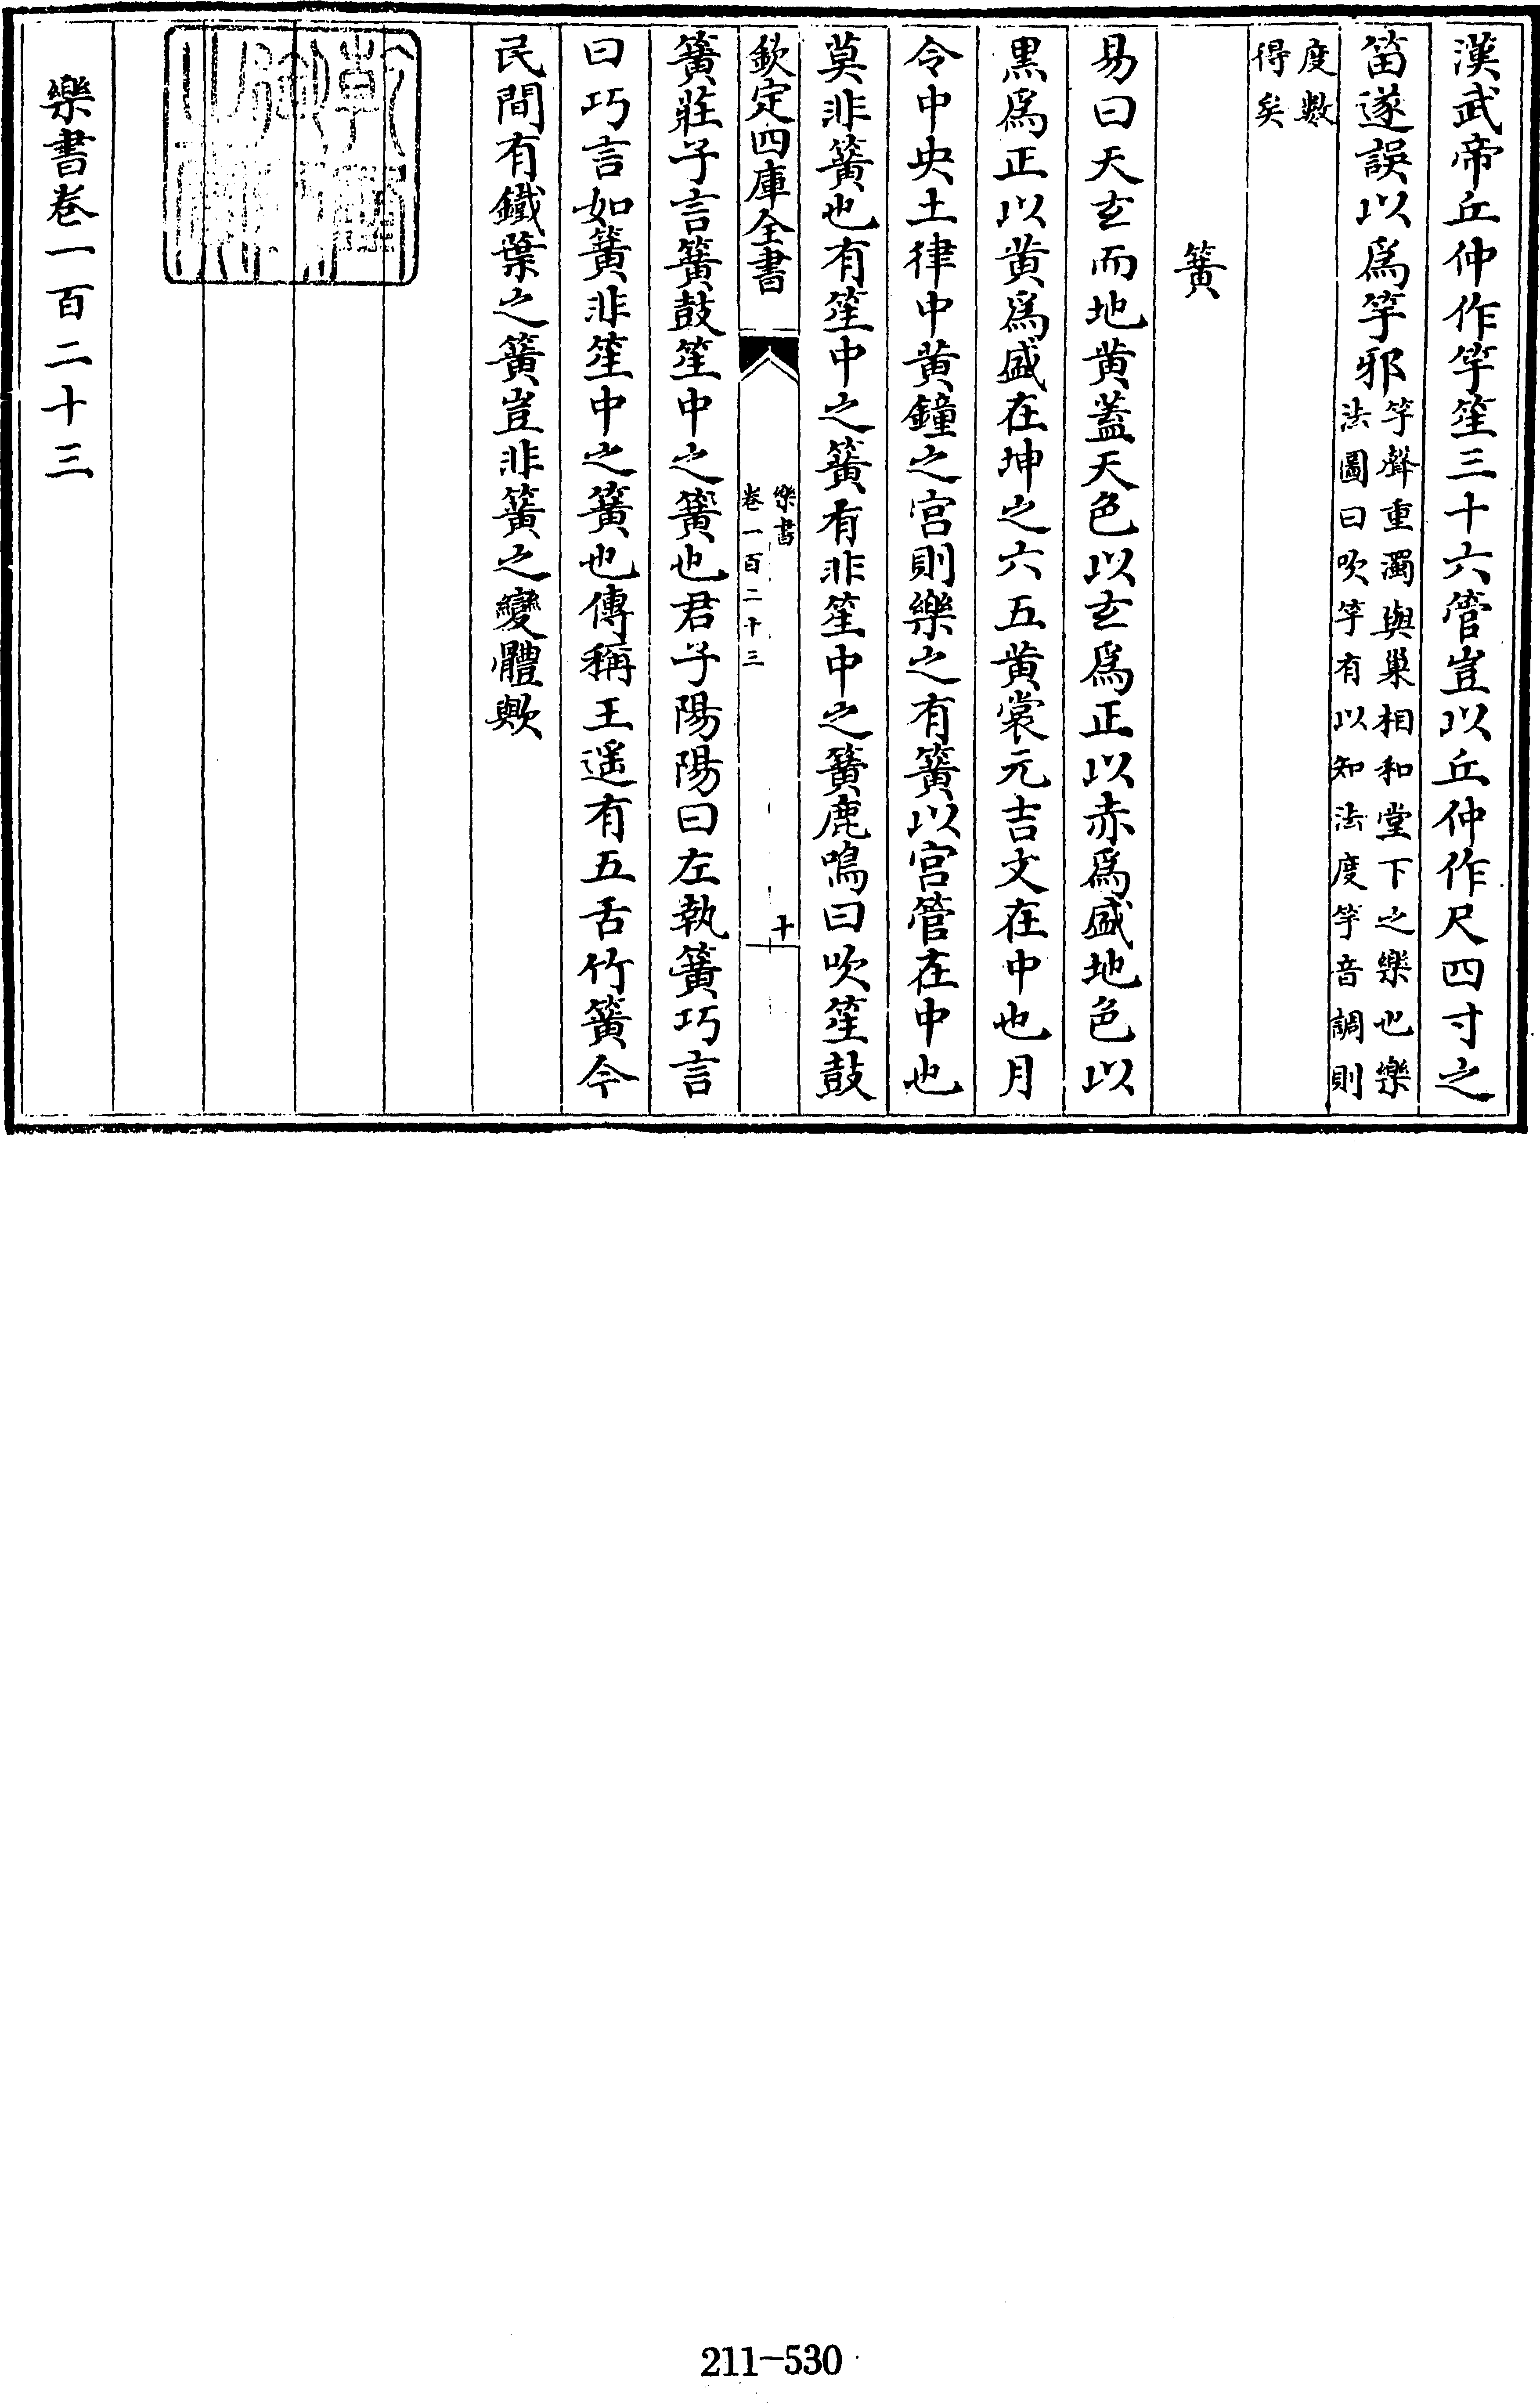 漢武帝丘仲作竽笙三十六管豈以丘仲作尺四寸之
笛遂誤以爲竽邪竽聲重濁與巢相和堂下之樂也樂
法圖曰吹竽有以知法度竽音調則
度數
得矣
簧
易曰天玄而地黄蓋天色以玄爲正以赤爲盛地色以
黒爲正以黄爲盛在坤之六五黄裳元吉文在中也月
令中央土律中黄鐘之宫則樂之有簧以宫管在中也
莫非簧也有笙中之簧有非笙中之簧鹿鳴曰吹笙鼓
欽定四庫全書
樂書
卷一百二十三
十
簧莊子言簧鼓笙中之簧也君子陽陽曰左執簧巧言
曰巧言如簧非笙中之簧也傳稱王遥有五舌竹簧今
民間有鐵葉之簧豈非簧之變體歟
樂書卷一百二十三
211-530